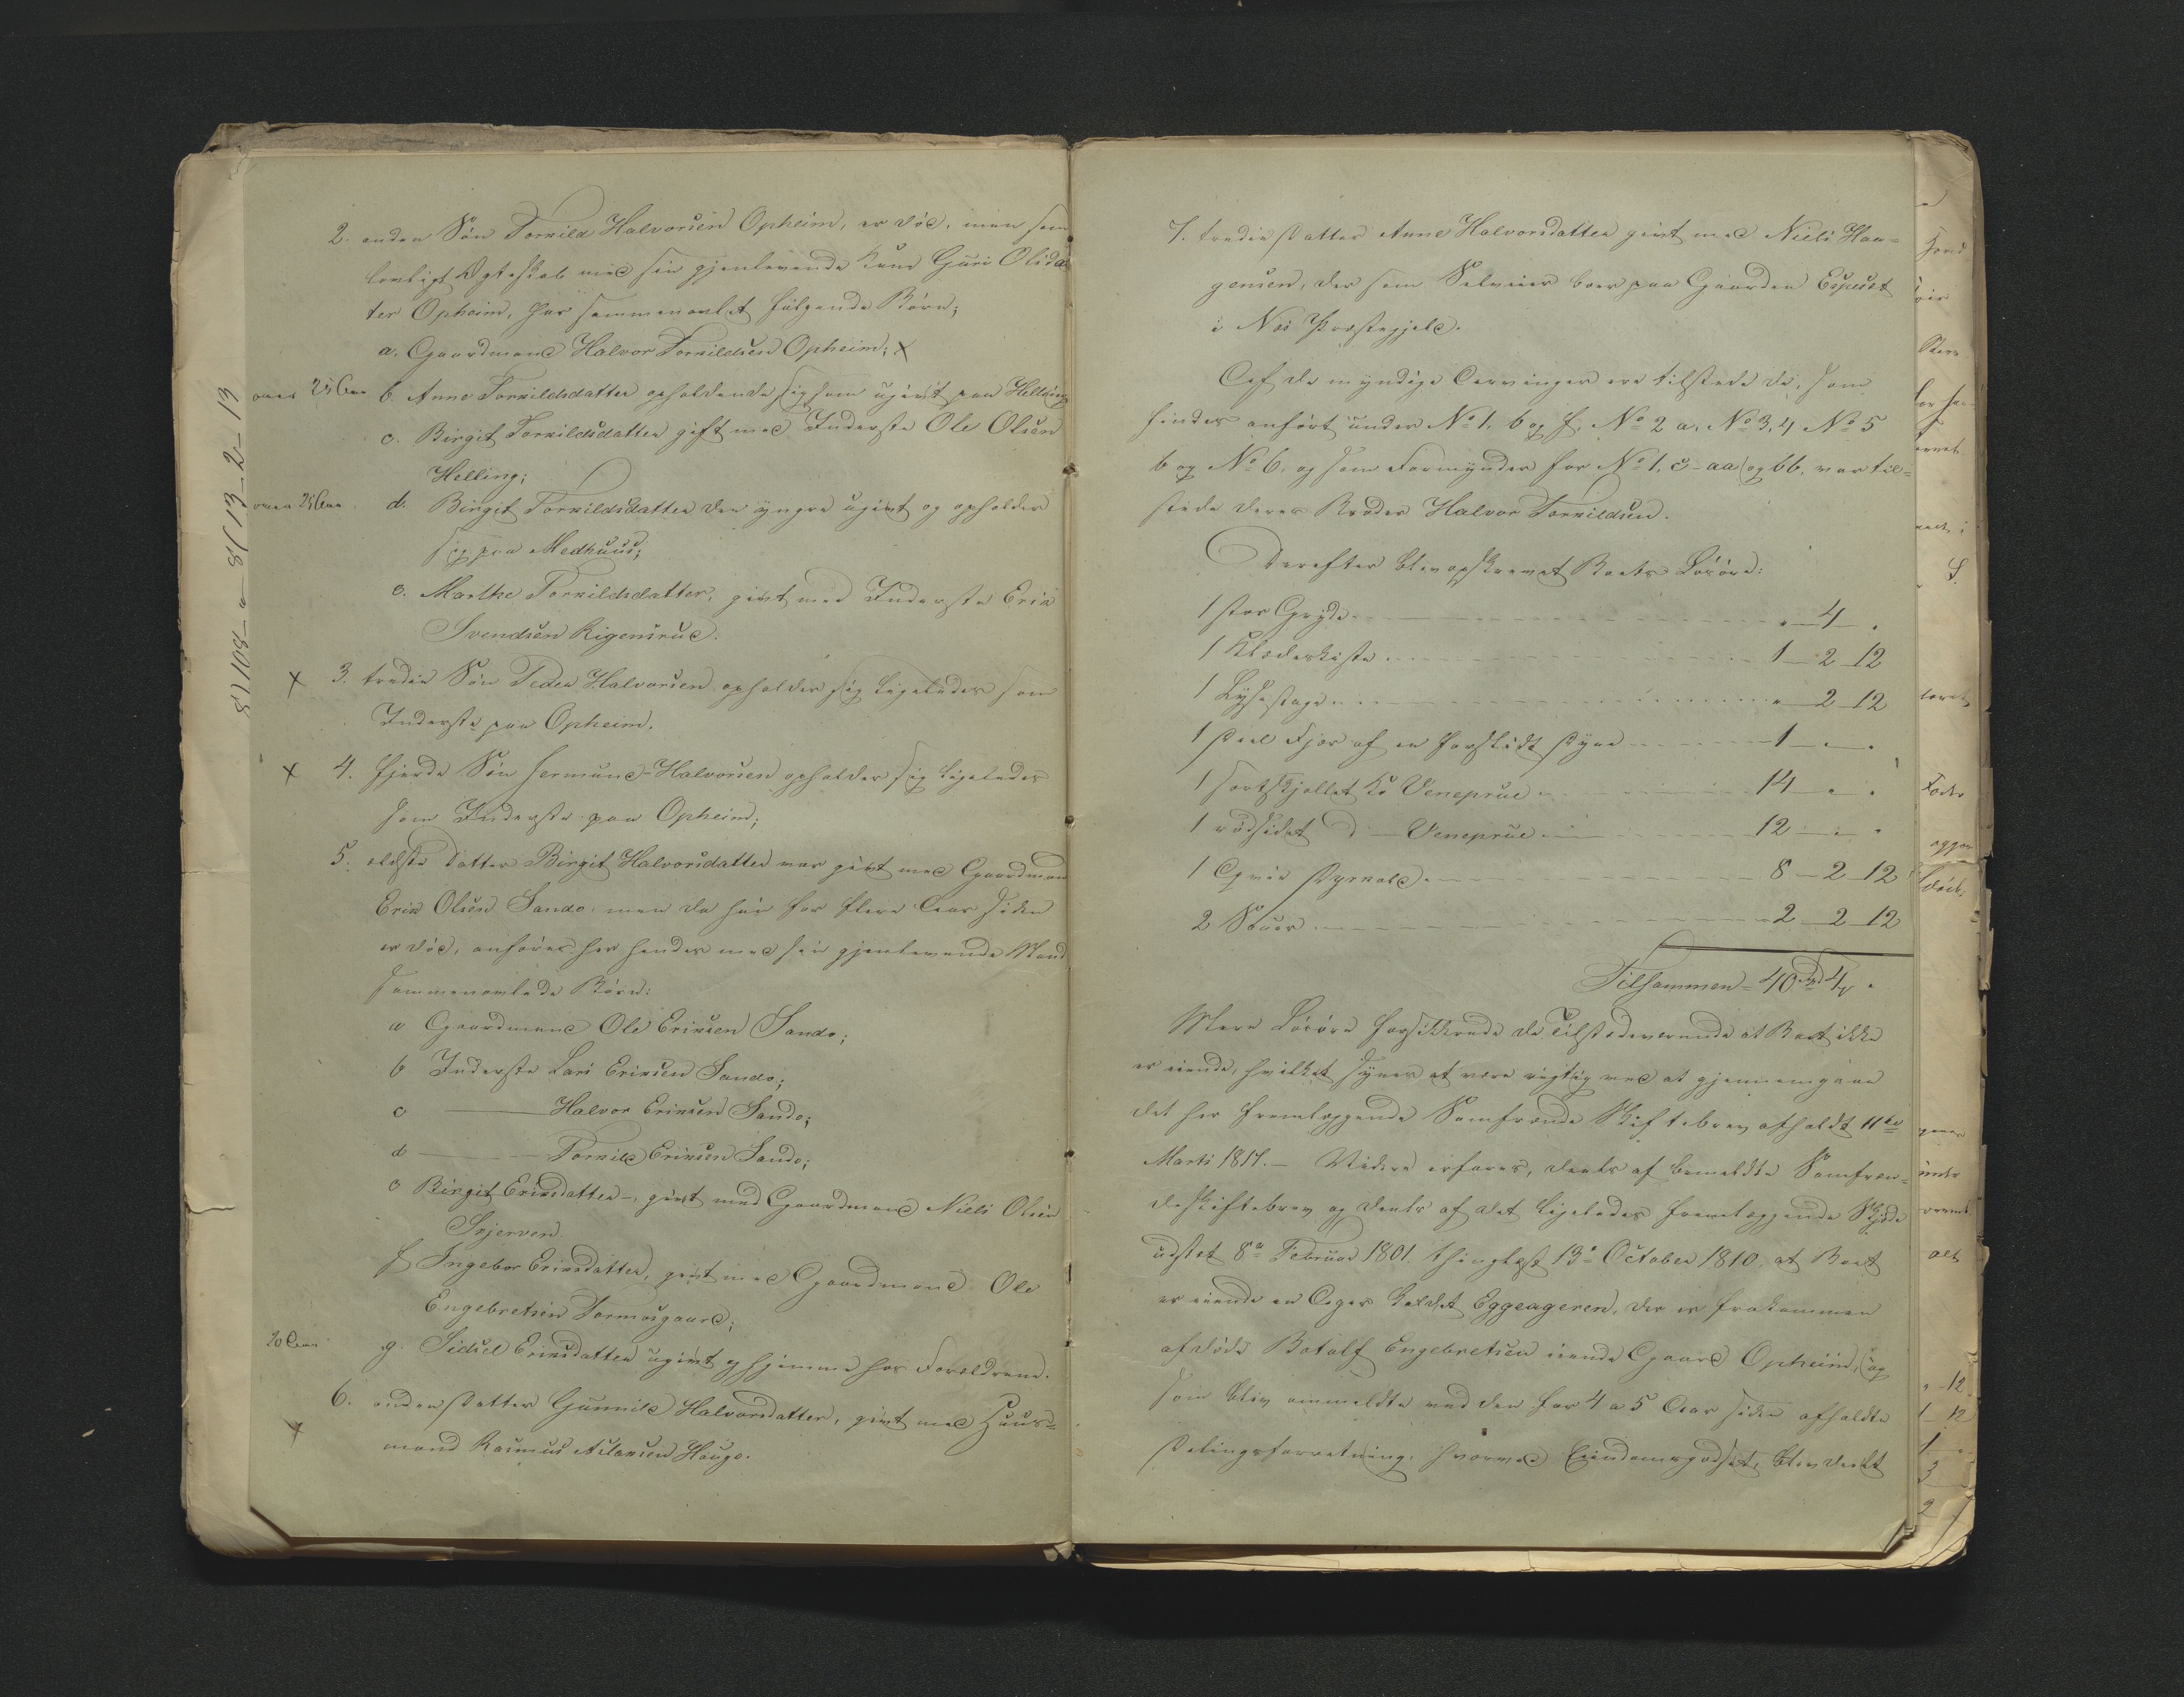 2. anden Søn Torkild Halvorsen Opheim, er død, men som
lovligt Ægteskab med sin gjenlevende Kone Guri Olsdat
ter Opheim, har sammenavlet følgende Børn;
a. Gaardmand Halvor Torkildsen Opheim; x
over 25 Aar b. Anne Torkildsdatter opholdende sig som ugivt paa Helling
c. Birgit Torkildsdatter gift med Inderste Ole Olsen
Helling;
over 25 Aar d. Birgit Torkildsdatter den yngre ugivt og opholder
sig paa Medhuus;
e. Marthe Torkildsdatter, givt med Inderste Erik
Svendsen Rigensrud.
x 3. tredie Søn Peder Halvorsen opholder sig ligeledes som
Inderste paa Opheim.
x 4. fjerde Søn Hermund Halvorsen opholder sig ligeledes
som Inderste paa Opheim;
5. ældste Datter Birgit Halvorsdatter var givt med Gaardmand
Erik Olsen Sando, men da hun for flere Aar siden
er død, anføres her hendes med sin gjenlevende Mand
sammenavlede Børn:
a Gaardmand Ole Eriksen Sando;
b Inderste Lars Eriksen Sando;
c — Halvor Eriksen Sando;
d — Torkild Eriksen Sando;
e Birgit Eriksdatter, givt med Gaardmand Niels Olsen
Skjerven.
f Ingebor Eriksdatter, givt med Gaardmand Ole
Engebretsen Tormosgaard;
20 Aar g. Sidsel Eriksdatter ugivt og hjemme hos Forældrene.
6. anden Datter Gunnild Halvorsdatter, givt med Huus-
x mand Rasmus Aslaksen Hougo.
8) 108 – a – 8 (13 – 2 – 13
7. tredie Datter Anne Halvorsdatter givt med Niels Haa-
gensen, der som Selveier boer paa Gaarden Espeset
i Næs Præstegjeld.
Af de myndige Arvinger ere tilstede de, som
findes anført under No 1, b og f, No 2 a, No 3, 4 No 5
b og No 6, og som Formynder for No 1, c – aa og bb, var til-
stede deres Broder Halvor Torkildsen.
Derefter blev opskrevet Boets Løsøre:
1 stor Gryde " 4 "
1 Klædeskiste 1 – 2 – 12
1 Lysestage " – 2 – 12
1 Deel Fjær af en forslidt Dyne 1 – " – "
1 sortskjollet Ko Veneprue 14 – " "
1 rødsidet d – Veneprue 12 – " "
1 Qvie Dyrwald 8 – 2 – 12
2 Souer 2 – 2 – 12
Tilsammen 40 Spd 4 "
Mere Løsøre forsikkrede de Tilstedeværende at Boet ikke
er eiende, hvilket synes at være rigtig ved at gjennemgaae
det her fremlæggende Samfrænde Skiftebrev afholdt 11te
Marti 1817. – Videre erfares, deels af bemeldte Samfræn-
deskiftebrev og deels af det ligeledes fremlæggende Skjøde
udstæt 8de Februar 1801. thinglæst 13de October 1810, at Boet
er eiende en Ager kaldet Eggeageren, der er frakommen
afdøde Botolf Engebretsen eiende Gaard Opheim, og
som blev anmeldte ved den for 4 a 5 Aar siden afholdte
Delingsforretning, hvorved Eiendomsgodset, blev deelt